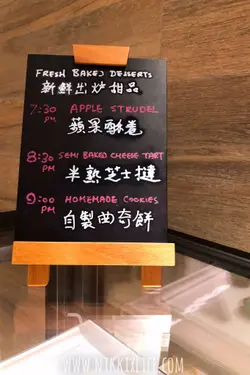 FRESH BAKED DESSERTS
新鮮出炉甜品
7:30 PM APPLE STRUDEL
蘋果酥卷
8:30 PM SEMI BAKED CHEESE TART
半熟芝士撻
9:00 PM HOMEMADE COOKIES
自製曲奇餅